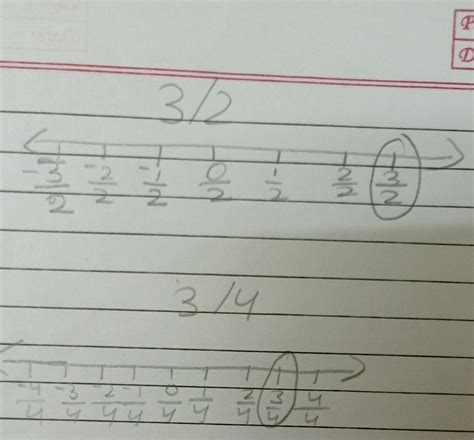 P
D
3/2
-3/2 -2/2 -1/2 0/2 1/2 2/2 3/2
3/4
-4/4 -3/4 -2/4 -1/4 0/4 1/4 2/4 3/4 4/4